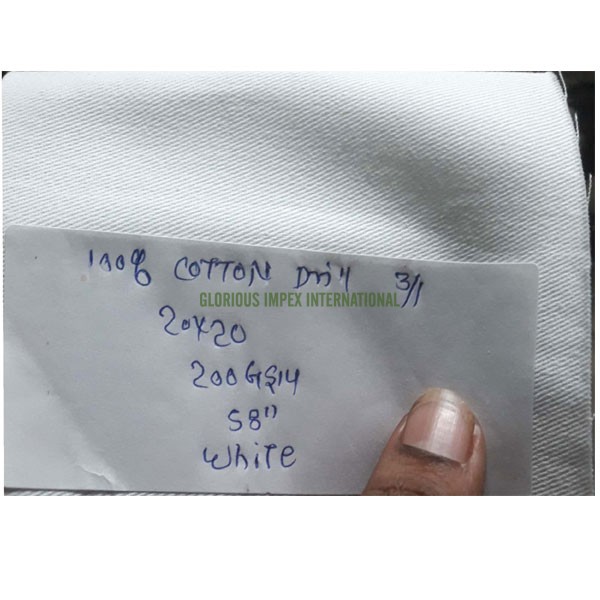 100% COTTON Drill 3/1
GLORIOUS IMPEX INTERNATIONAL
20X20
200 GSM
58"
White